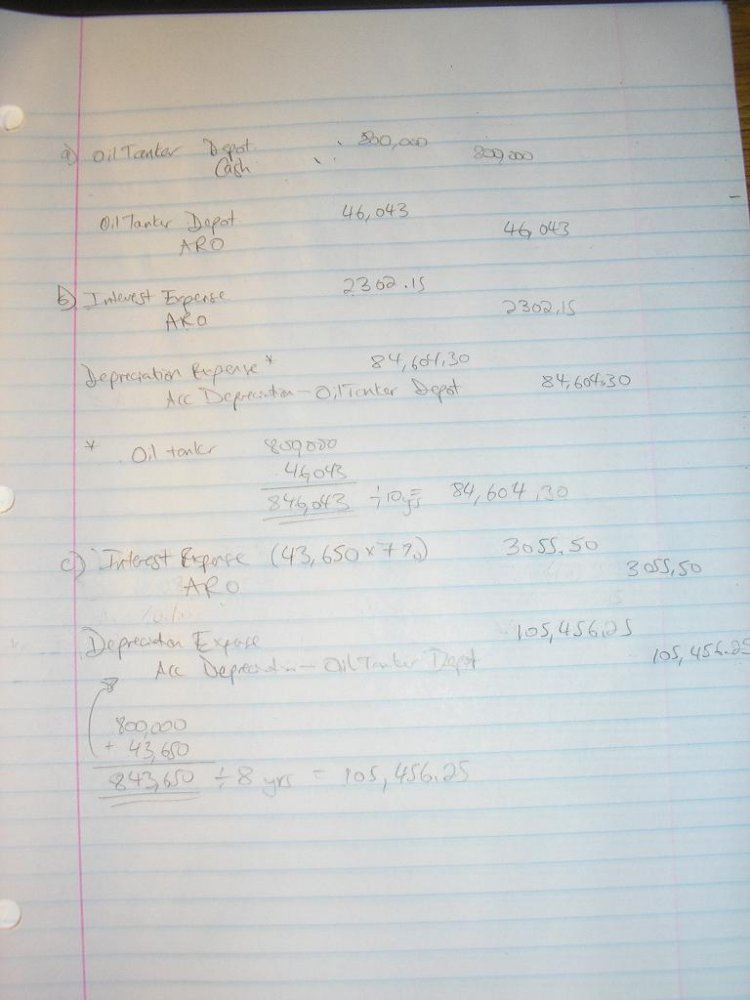 a) Oil Tanker Depot 800,000
Cash 800,000
Oil Tanker Depot 46,043
ARO 46,043
b) Interest Expense 2302.15
ARO 2302.15
Depreciation Expense * 84,604.30
Acc Depreciation - Oil Tanker Depot 84,604.30
* Oil tanker 800,000
46,043
846,043 ÷ 10 yrs = 84,604.30
c) Interest Expense (43,650 x 7%) 3055.50
ARO 3055.50
Depreciation Expense 105,456.25
Acc Depreciation - Oil Tanker Depot 105,456.25
800,000
+ 43,650
843,650 ÷ 8 yrs = 105,456.25